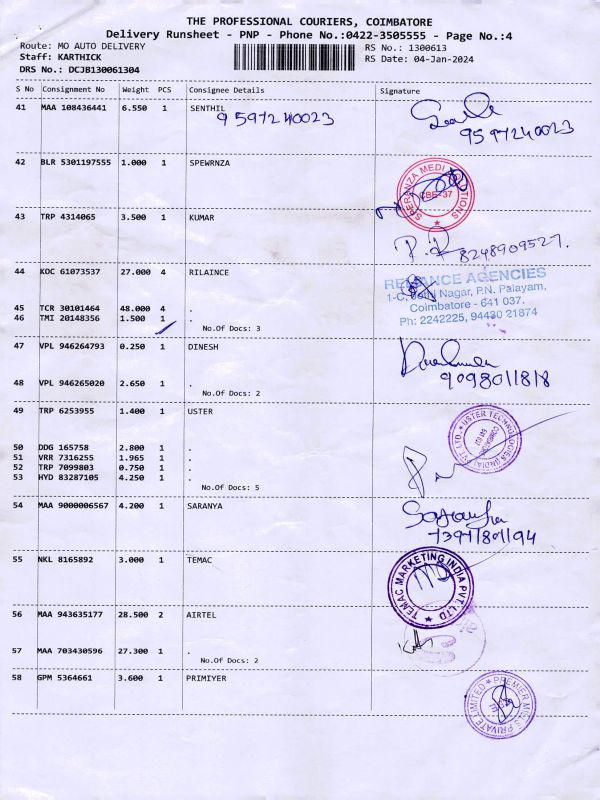 THE PROFESSIONAL COURIERS, COIMBATORE
Delivery Runsheet - PNP - Phone No.:0422-3505555 - Page No.:4
Route: MO AUTO DELIVERY RS No.: 1300613
Staff: KARTHICK RS Date: 04-Jan-2024
DRS No.: DCJB130061304
S No Consignment No Weight PCS Consignee Details Signature
41 MAA 108436441 6.550 1 SENTHIL
9597240023
9597240023
42 BLR 5301197555 1.000 1 SPEWRNZA
SPERANZA MEDI
CBE-37
43 TRP 4314065 3.500 1 KUMAR
8248909527.
44 KOC 61073537 27.000 4 RILAINCE
RELIANCE AGENCIES
1-C, Nagar, P.N. Palayam,
Coimbatore - 641 037.
Ph: 2242225, 94430 21874
45 TCR 30101464 48.000 4 .
46 TMI 20148356 1.500 1 .
No.Of Docs: 3
47 VPL 946264793 0.250 1 DINESH
9098011818
48 VPL 946265020 2.650 1 .
No.Of Docs: 2
49 TRP 6253955 1.400 1 USTER
USTER TECHNOLOGIES (INDIA) PVT. LTD.
50 DDG 165758 2.800 1 .
51 VRR 7316255 1.965 1 .
52 TRP 7099803 0.750 1 .
53 HYD 83287105 4.250 1 .
No.Of Docs: 5
54 MAA 9000006567 4.200 1 SARANYA
55 NKL 8165892 3.000 1 TEMAC
TEMAC MARKETING INDIA PVT. LTD
56 MAA 943635177 28.500 2 AIRTEL
57 MAA 703430596 27.300 1 .
No.Of Docs: 2
58 GPM 5364661 3.600 1 PRIMIYER
PREMIER MILLS PRIVATE LIMITED